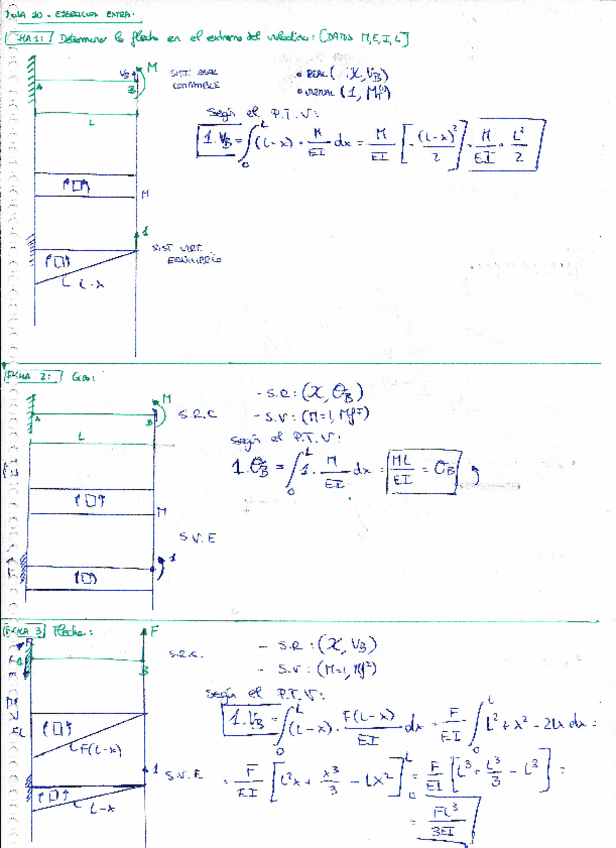 10 - EJERCICIOS EXTRA.
FICHA 1: Determinar la flecha en el extremo del voladizo: [DATOS M, E, I, L]
V_B M SIST. REAL COMPATIBLE
A B
L
• REAL (χ, V_B)
• VIRTUAL (1, Mf)
Según el P.T.V:
1·V_B = ∫₀ᴸ (L-x) · M/EI dx = M/EI [-(L-x)²/2] = M/EI · L²/2
M
1 SIST. VIRT. EQUILIBRIO
L-x
FICHA 2: Giro:
M
A B S.R.C
L
- S.R: (χ, θ_B)
- S.V: (M=1, Mf)
Según el P.T.V:
1·θ_B = ∫₀ᴸ 1 · M/EI dx = ML/EI = θ_B
M
S.V.E
1
FICHA 3: Flecha:
F
S.R.C.
B
- S.R: (χ, V_B)
- S.V: (M=1, Mf)
Según el P.T.V:
1·V_B = ∫₀ᴸ (L-x) · F(L-x)/EI dx = F/EI ∫₀ᴸ L²+x²-2Lx dx =
F(L-x)
1 S.V.E
L-x
= F/EI [L²x + x³/3 - Lx²]₀ᴸ = F/EI [L³ + L³/3 - L³] =
= FL³/3EI